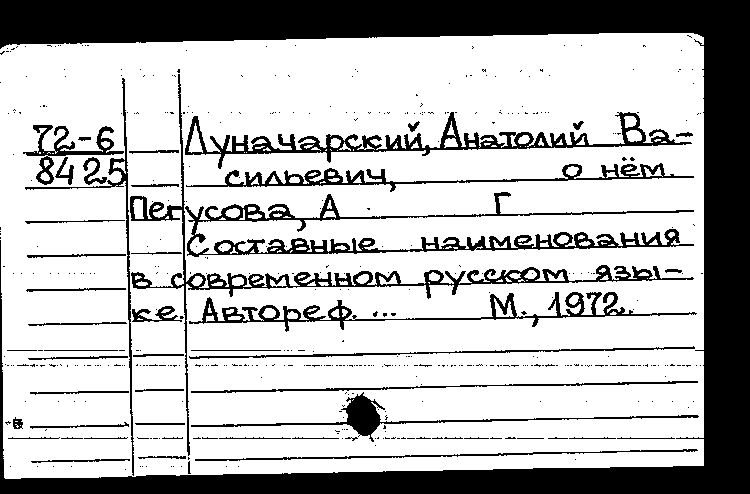 72-6 Луначарский, Анатолий Ва-
8425 сильевич, о нём.
Пегусова, А Г
Составные наименования
в современном русском язы-
ке. Автореф. ... М., 1972.